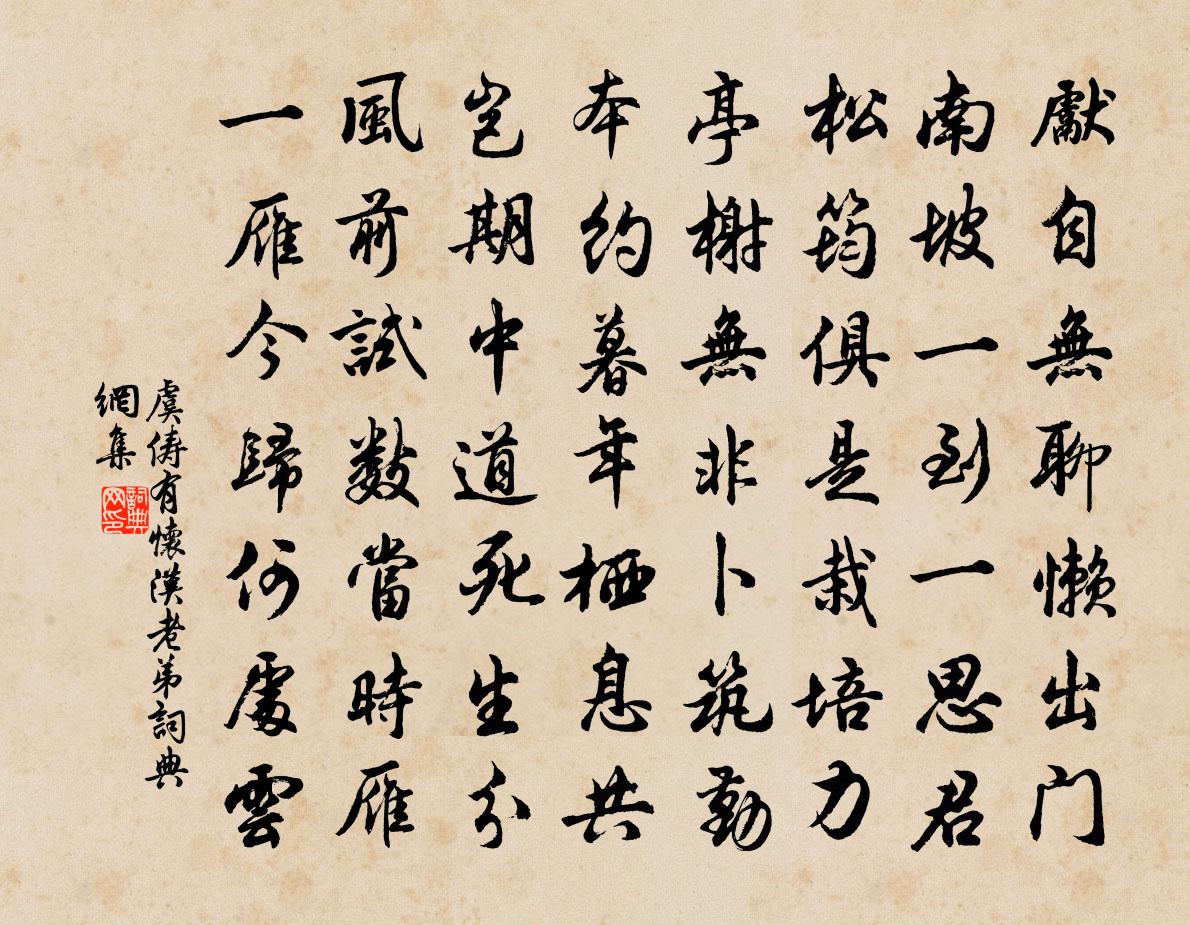 獻自無聊懶出门
南坡一到一思君
松筠俱是栽培力
亭榭無非卜筑勤
本約暮年栖息共
豈期中道死生分
風前試數當時雁
一雁今歸何處雲
虞儔有懷漢老弟詞典
網集
詞典
网印